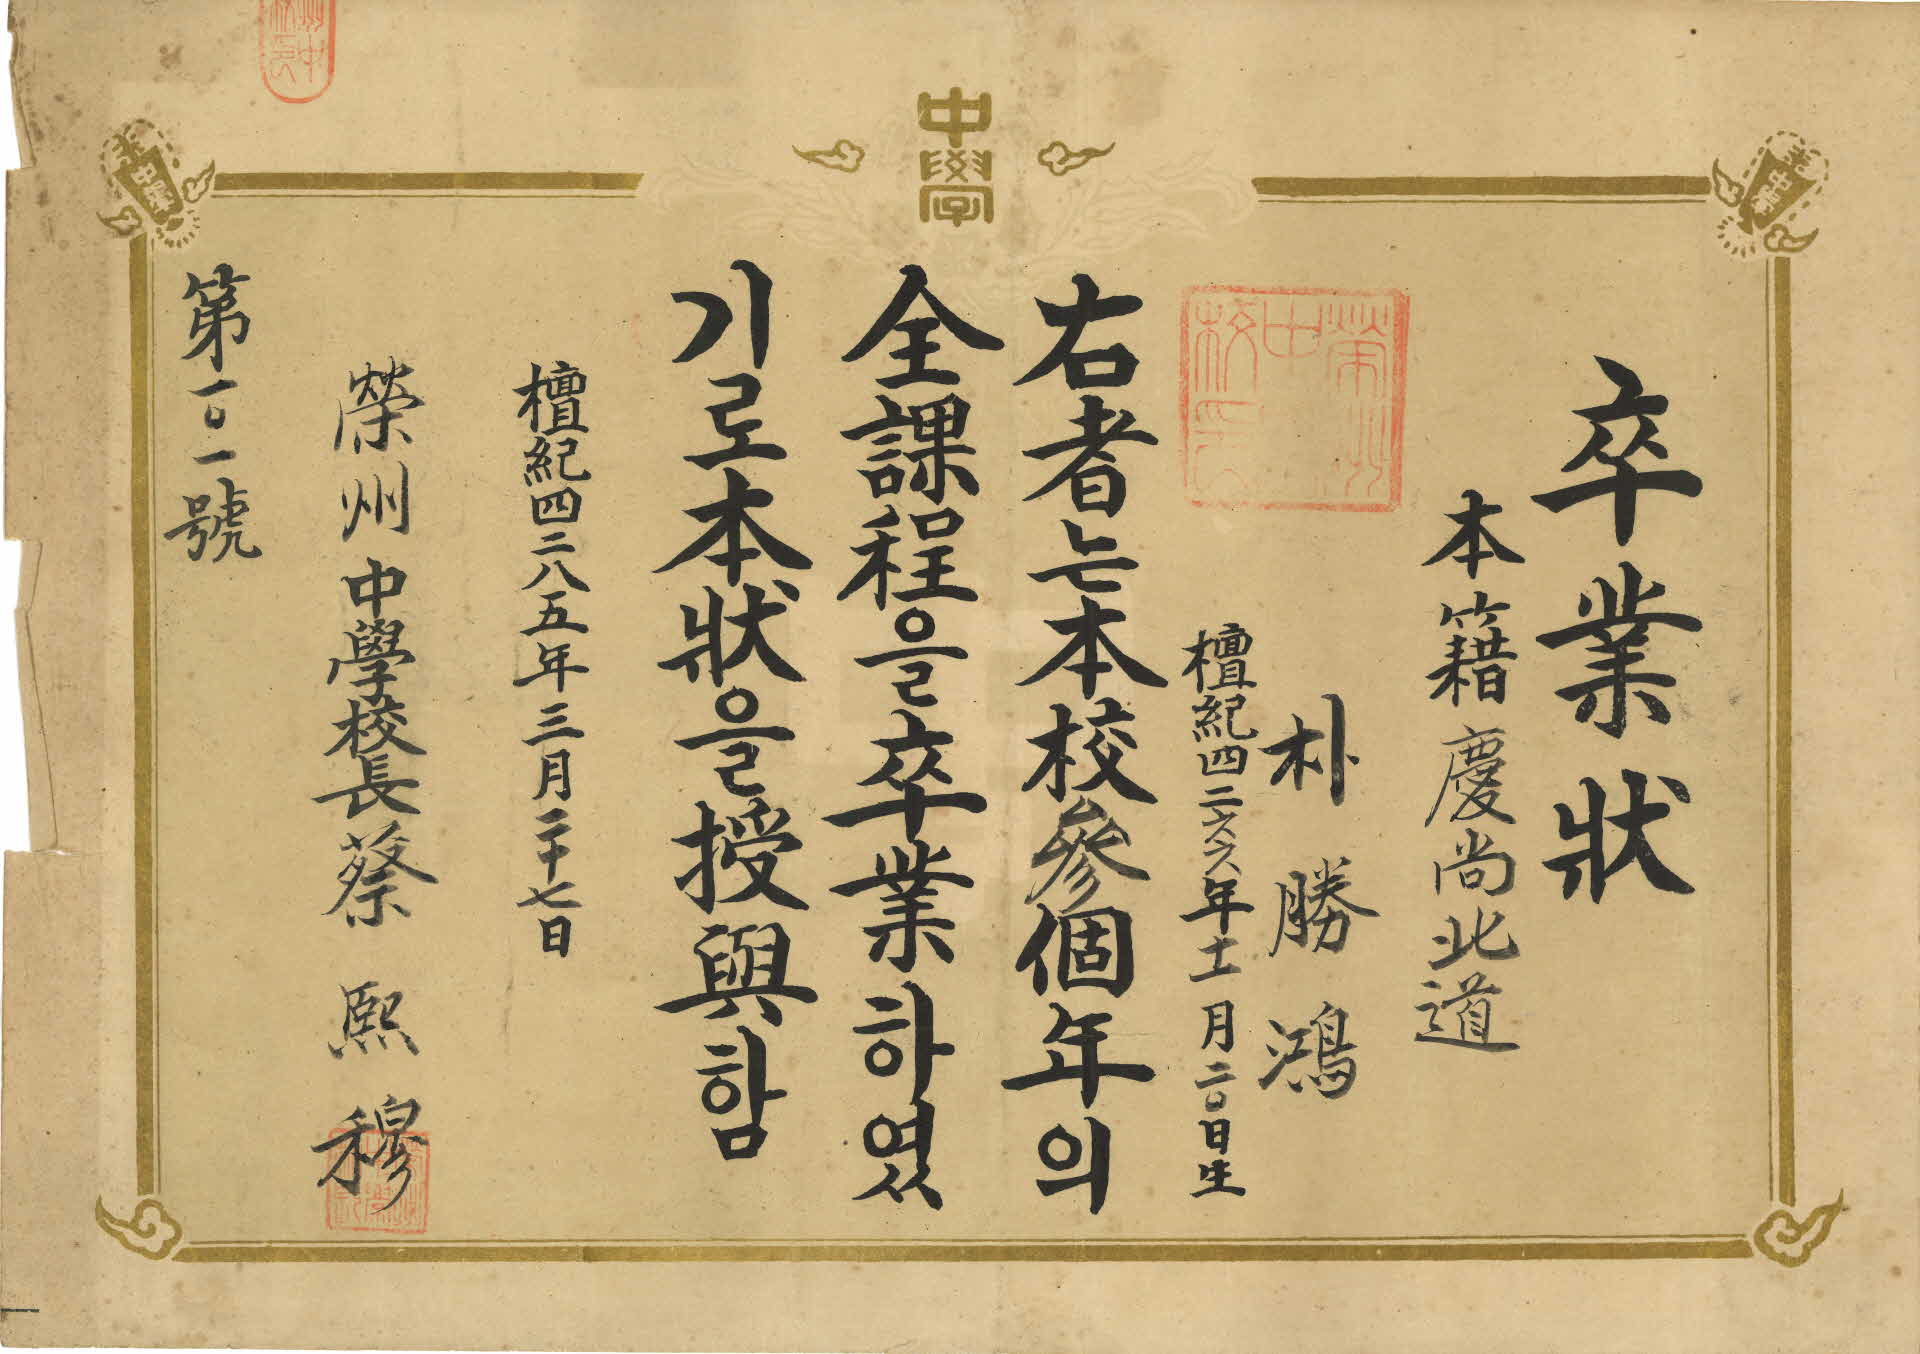 中學
卒業狀
本籍慶尚北道
朴勝鴻
檀紀四二六六年十一月二〇日生
右者는本校參個年의
全課程을卒業하였
기로本狀을授與함
檀紀四二八五年三月二十七日
榮州中學校長蔡熙穆
第一〇一號